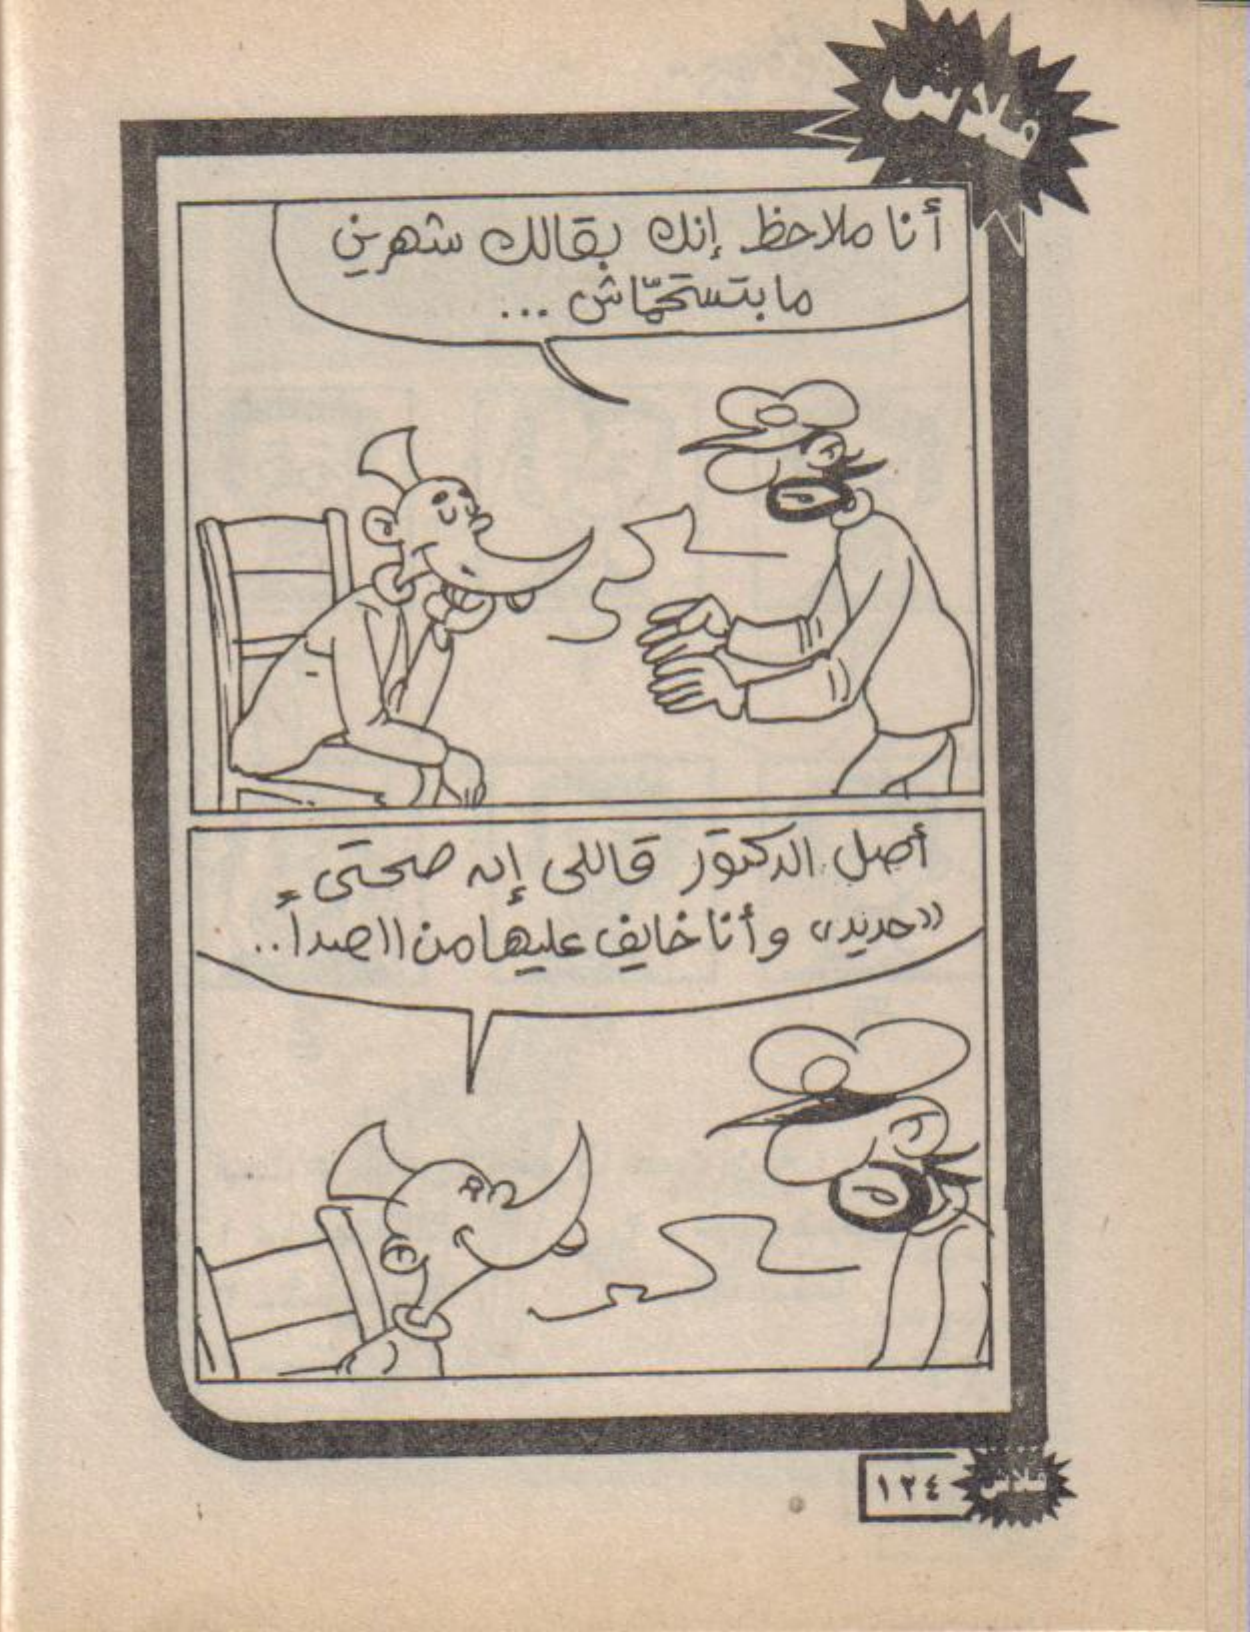 فلاش
أنا ملاحظ إنك بقالك شهرين
مابتستحمّاش ...
أصل الدكتور قاللى إن صحتى
«حديد» وأنا خايف عليها من الصدأ..
١٢٤
فلاش